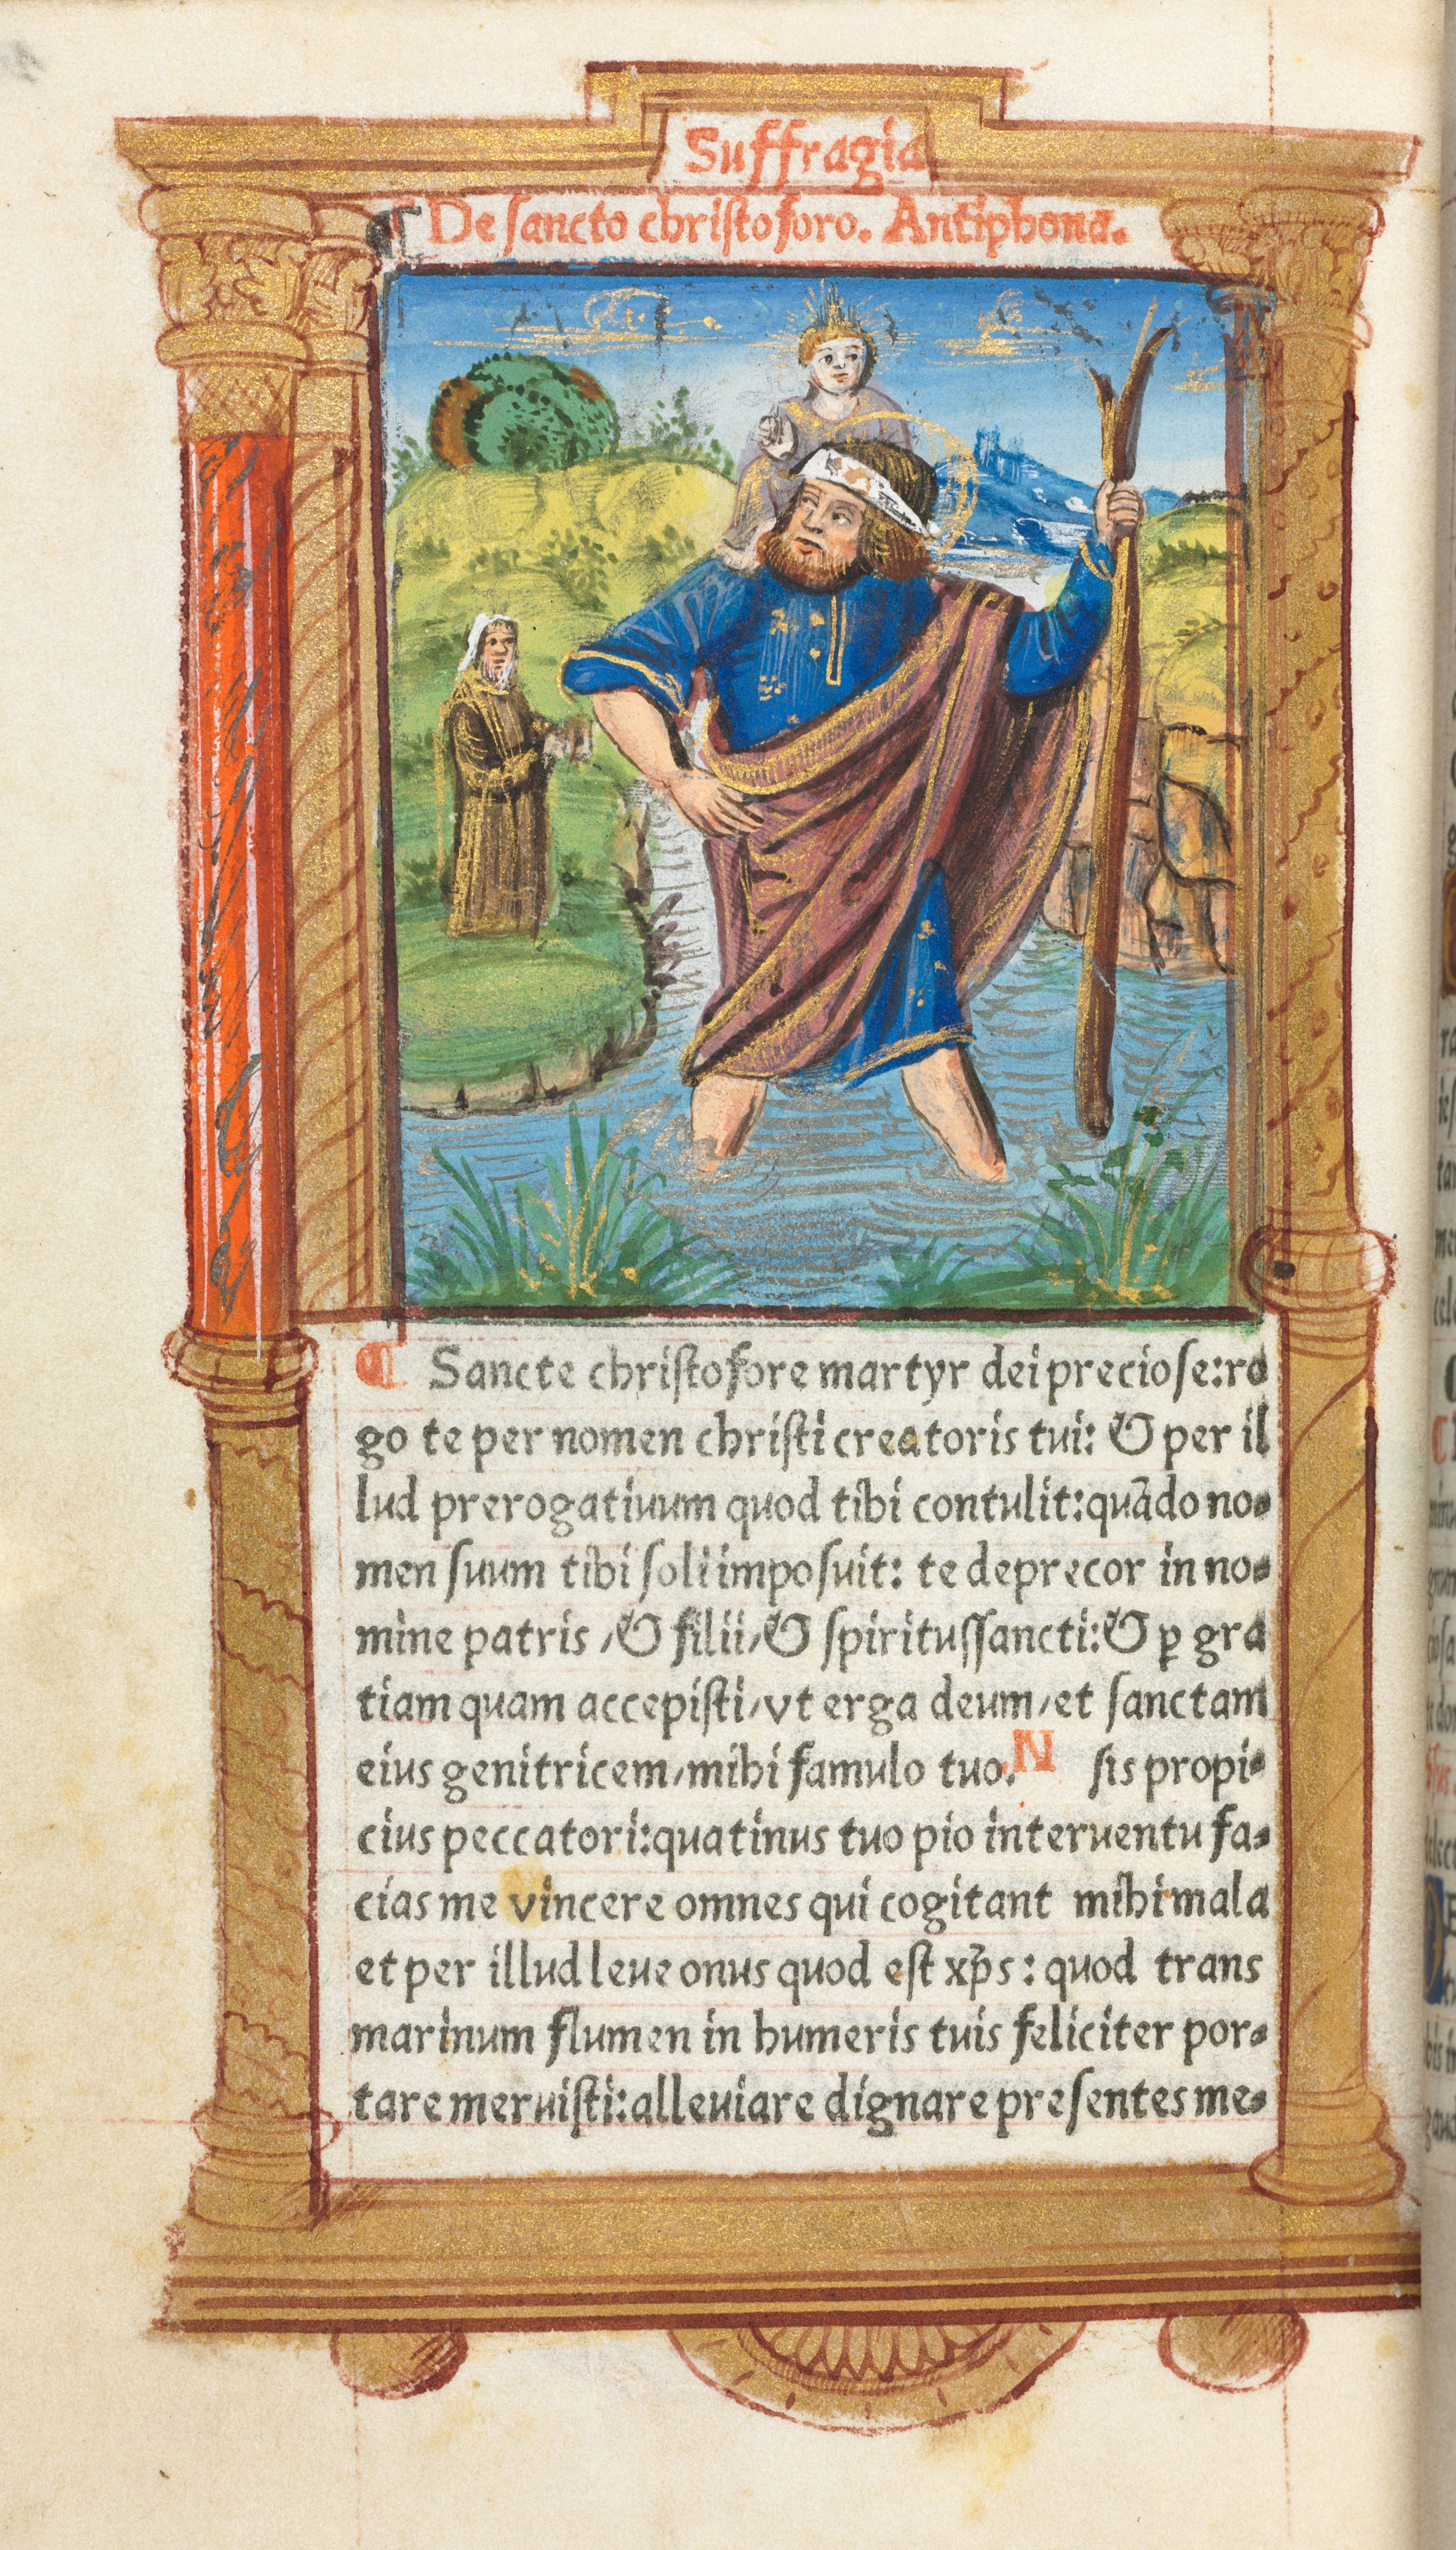 Suffragia
¶ De sancto christoforo. Antiphona.
¶ Sancte christofore martyr dei preciose:ro
go te per nomen christi creatoris tui: & per il
lud prerogatiuum quod tibi contulit:quãdo no-
men suum tibi soli imposuit: te deprecor in no-
mine patris / & filii / & spiritussancti:& ꝑ gra
tiam quam accepisti / vt erga deum / et sanctam
eius genitricem / mihi famulo tuo. N sis propi-
cius peccatori:quatinus tuo pio interuentu fa-
cias me vincere omnes qui cogitant mihi mala
et per illud leue onus quod est xp̃s : quod trans
marinum flumen in humeris tuis feliciter por-
tare meruisti:alleuiare dignare presentes me-